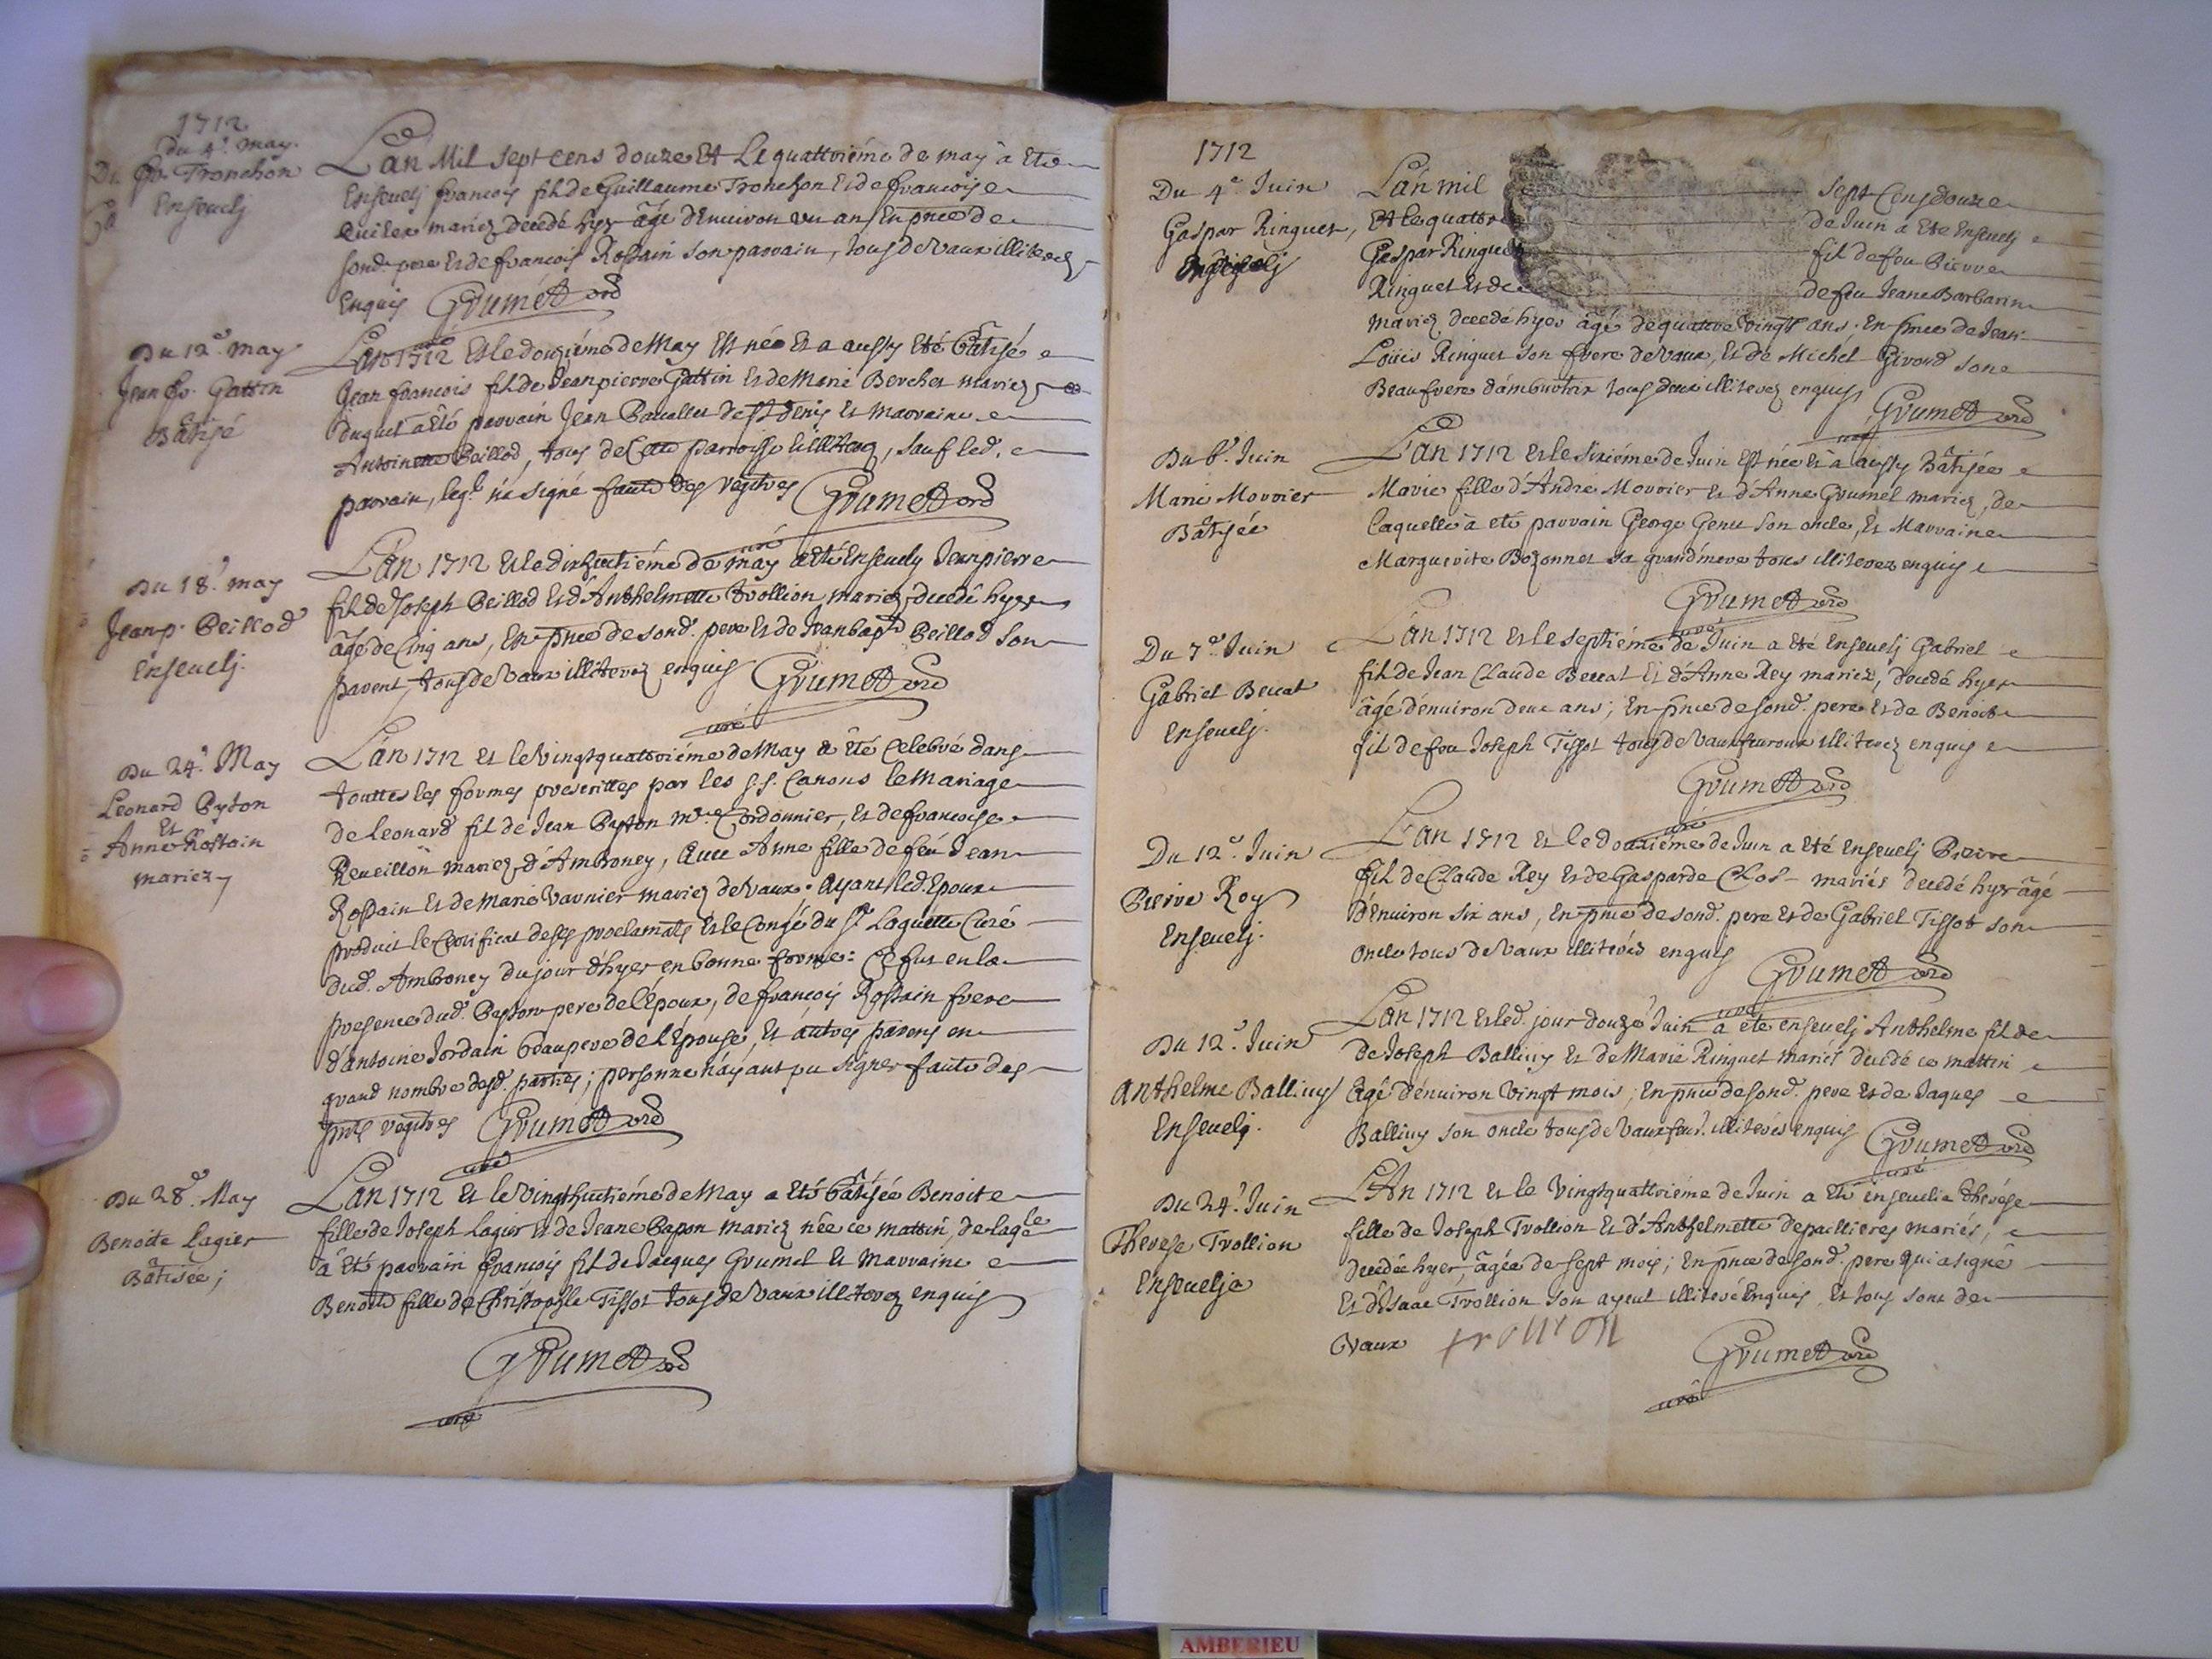 1712
Du 4e. may.
fr. Tronchon
Enseuelj
Lan Mil sept cens douze Et Le quattriéme de may a Ete
Enseuelj francois fil de Guillaume Tronchon Et de francoise
mariez decedé hyer âgé d'Enuiron un an En pnce de
sond. pere Et de francois Rostain son parrain, tous de Vaux illiterez
Enquis Grumet
curé
Du 12e. may
Jean fr. Gattin
Bâtisé
Lan 1712 Et le douziéme de May Est né Et a aussy Eté bâtisé
Jean francois fil de Jean pierre Gattin Et de Marie Bercher mariez
duquel a Eté parrain Jean de St Denis Et Marraine
Antoinette Beillod, tous de Cette parroisse illiterez, sauf led.
parrain, leql. n'a signé faute des registres Grumet
curé
Du 18e. may
Jean p. Beillod
Enseuelj.
Lan 1712 Et le dixhuitiéme de may a Eté Enseuely Jean pierre
fil de Joseph Beillod Et d'Anthelmette trollion mariez, decedé hyer
âgé de Cinq ans, En pnce de sond. pere Et de Jean bapt Beillod son
parent, tous de Vaux illiterez enquis Grumet
curé
Du 24e. May
Leonard Byton
Et
Anne Rostain
mariez
Lan 1712 Et le Vingtquattriéme de May a été Celebré dans
touttes les formes prescrittes par les S.S. Canons le Mariage
de leonard fil de Jean Byton mre. Cordonnier, Et de francoise
Reueillon mariez d'Ambroney, Auec Anne fille de feu Jean
Rostain Et de Marie Varnier mariez de Vaux. Ayant led. Epoux
produit le Certificat de ses proclamats Et le Congé du Sr. Laguette Curé
dud. Ambroney du jour d'hyer en bonne forme: Ce fut en la
presence dud. Byton pere de l'époux, de francois Rostain frere
d'antoine Jordain beaupere de l'Epouse, Et autres parens en
grand nombre desd. parties; personne n'ayant pu signer faute des
registres Grumet
curé
Du 28e. May
Benoite Lagier
Bâtisée;
Lan 1712 Et le Vingthuitiéme de May a Eté bâtisée Benoite
fille de Joseph Lagier Et de Jeane Bapon mariez née ce mattin, de laqle
a Eté parrain francois fil de Jacques Grumet Et Marraine
Benoite fille de Christophle Tissot tous de Vaux illiterez enquis
Grumet
curé
1712
Du 4e. Juin
Gaspar Ringuet,
Enseuelj
Lan mil sept Cens douze
Et le quatre de Juin a Ete Enseuelj
Gaspar Ringuet fil de feu Pierre
Ringuet Et de de feu Jeane Barbarin
mariez decedé hyer âgé de quattre Vingt ans. En pnce de Jean
Loüis Ringuet son frere de Vaux, Et de Michel Givord son
Beaufrere d'ambutrix tous deux illiterez enquis Grumet
curé
Du 6e. Juin
Marie Mourier
Bâtisée
Lan 1712 Et le sixiéme de Juin Est née Et a aussy Bâtisée
Marie fille d'Andre Mourier Et d'Anne Grumel mariez, de
laquelle a eté parrain George Genet son oncle, Et Marraine
Marguerite Bozonnet sa grand'mere tous illiterez enquis
Grumet
curé
Du 7e. Juin
Gabriel Beccat
Enseuelj.
Lan 1712 Et le septiéme de Juin a Eté Enseuelj Gabriel
fil de Jean Claude Beccat Et d'Anne Rey mariez, decedé hyer
âgé d'enuiron deux ans; En pnce de sond. pere Et de Benoit
fil de feu Joseph Tissot tous de Vaux illiterez enquis
Grumet
curé
Du 12e. Juin
Pierre Roy
Enseuelj.
Lan 1712 Et le douziéme de Juin a Eté Enseuelj Pierre
fil de Claude Rey Et de Gasparde Clos mariés decedé hyer âgé
d'Enuiron six ans, En pnce de sond. pere Et de Gabriel Tissot son
oncle tous de Vaux illiterés enquis
Grumet
curé
Du 12e. Juin
Anthelme Balliuy
Enseuelj.
Lan 1712 Et led. jour douze Juin a eté enseuelj Anthelme fil de
de Joseph Balliuy Et de Marie Ringuet mariés decedé ce mattin
âgé d'enuiron Vingt mois; En pnce de sond. pere Et de Jaques
Balliuy son oncle tous de Vaux illiterés enquis Grumet
curé
Du 24e. Juin
Therese Trollion
Enseuelie
LAn 1712 Et le Vingtquattriéme de Juin a Eté enseuelie therése
fille de Joseph Trollion Et d'Anthelmette depaillieres mariés,
decedée hyer, âgée de sept mois; En pnce de sond. pere qui a signé
Et d'Isaac Trollion son ayeul illiteré Enquis, Et tous sont de
Vaux trollion
Grumet
curé
AMBERIEU